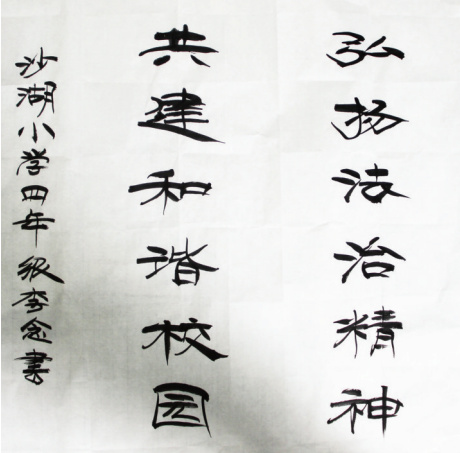 弘扬法治精神
共建和谐校园
沙湖小学四年级李念书